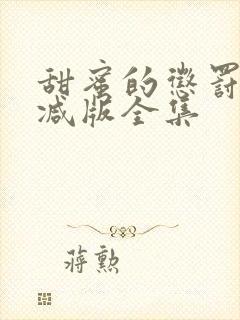 甜蜜的懲罰
减版全集
蔣勲